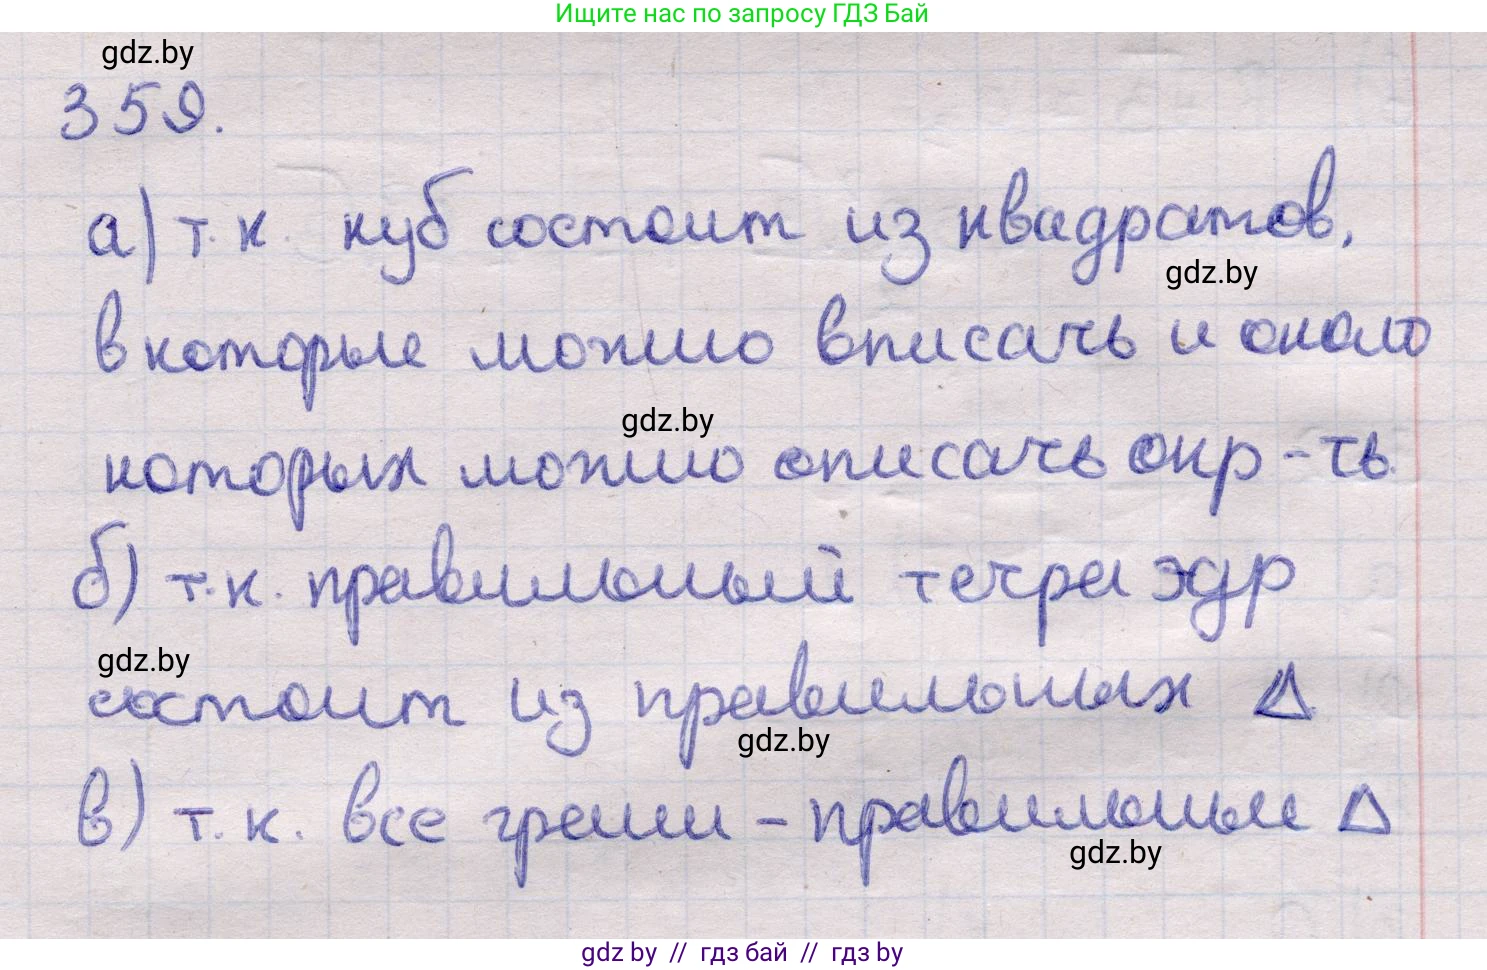 Ищите нас по запросу ГДЗ Бай
gdz.by
359.
а) т.к. куб состоит из квадратов,
gdz.by
в которые можно вписать и около
gdz.by
которых можно описать окр-ть.
б) т.к. правильный тетраэдр
gdz.by
состоит из правильных Δ
gdz.by
в) т.к. все грани - правильные Δ
gdz.by
gdz.by // гдз бай // гдз by